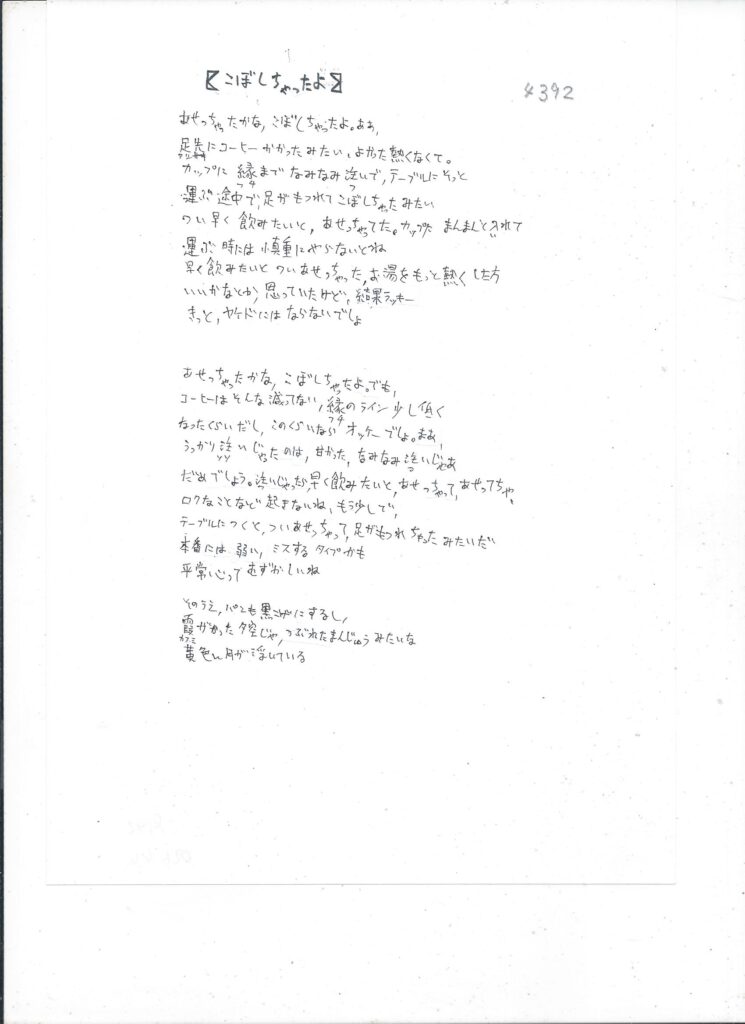 【こぼしちゃったよ】
4392
あせっちゃったかな,こぼしちゃったよ。ああ,
足先にコーヒーかかったみたい,よかった熱くなくて。
カップに縁までなみなみ注いで,テーブルにそっと
フチ
つ
運ぶ途中で,足がもつれてこぼしちゃったみたい
つい早く飲みたいと,あせっちゃってた。カップに まんまんと入れて
運ぶ時には慎重にやらないとね
早く飲みたいと ついあせっちゃった,お湯をもっと熱くした方
いいかなとか,思っていたけど,結果ラッキー
きっと,ヤケドにはならないでしょ
あせっちゃったかな,こぼしちゃったよ。でも,
コーヒーはそんな減ってない,縁のライン少し低く
フチ
なったくらいだし,このくらいなら オッケーでしょ。まあ,
うっかり注いじゃったのは,甘かった,なみなみ注いじゃあ
ソソ
つ
だめでしょう。注いじゃったら,早く飲みたいと,あせっちゃって,あせってちゃ,
ロクなことなど起きないね,もう少しで,
テーブルにつくと,ついあせっちゃって,足がもつれちゃったみたいだ
本番には弱い,ミスするタイプかも
平常心ってむずかしいね
そのうえ,パンも黒こげにするし,
霞がかった夕空じゃ,つぶれたまんじゅうみたいな
カスミ
黄色い月が浮いている